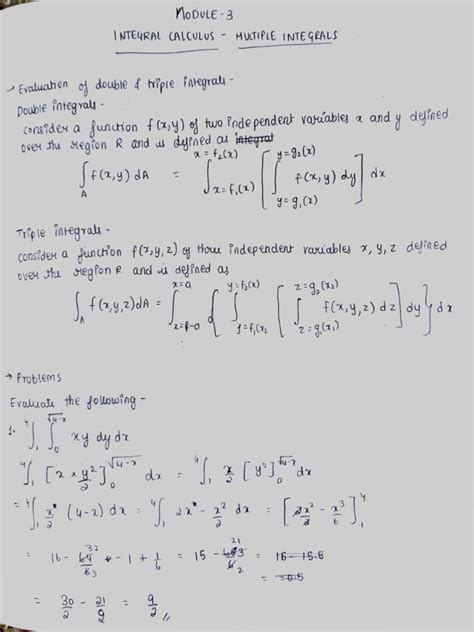 MODULE-3
INTEGRAL CALCULUS - MUTIPLE INTEGRALS
→ Evaluation of double & triple integrals -
Double integrals -
consider a function f(x,y) of two independent variables x and y defined
over the region R and is defined as integrat
∫_A f(x,y) dA = ∫_{x=f₁(x)}^{x=f₂(x)} [ ∫_{y=g₁(x)}^{y=g₂(x)} f(x,y) dy ] dx
Triple integrals -
consider a function f(x,y,z) of three independent variables x, y, z defined
over the region R and is defined as
∫_A f(x,y,z)dA = ∫_{x=-a}^{x=a} { ∫_{y=f₁(x)}^{y=f₂(x)} [ ∫_{z=g₁(x)}^{z=g₂(x)} f(x,y,z) dz ] dy } dx
→ Problems
Evaluate the following -
1. ∫_1^4 ∫_0^{√4-x} xy dy dx
∫_1^4 [x × y²/2]_0^{√4-x} dx = ∫_1^4 x/2 [y²]_0^{√4-x} dx
= ∫_1^4 x/2 (4-x) dx = ∫_1^4 2x - x²/2 dx = [2x²/2 - x³/6]_1^4
= 16 - 64/6 - 1 + 1/6 = 15 - 63/6 = 15 - 15.5
= -0.5
= 30/2 - 21/2 = 9/2 //